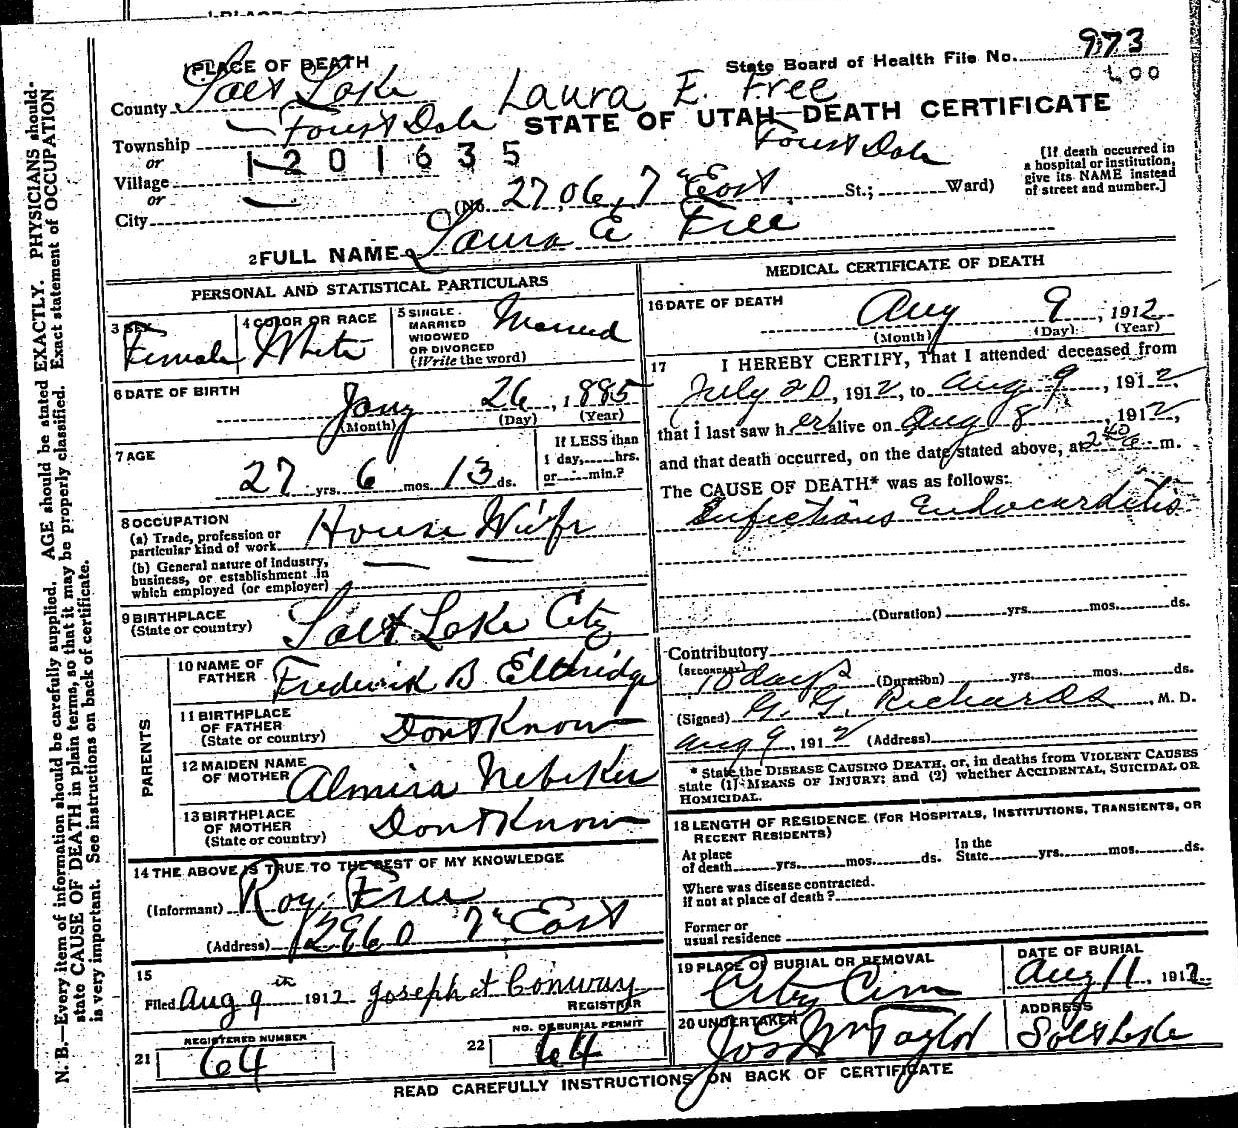 1 PLACE OF DEATH
State Board of Health File No. 973
County Salt Lake
Laura E. Free
STATE OF UTAH—DEATH CERTIFICATE
Township Forest Dale
or
1 2 0 1 6 3 5
Village
or
City
Forest Dale
(No. 2706, 7" East St.; Ward)
[If death occurred in
a hospital or institution,
give its NAME instead
of street and number.]
2 FULL NAME Laura E Free
PERSONAL AND STATISTICAL PARTICULARS
3 SEX
Female
4 COLOR OR RACE
White
5 SINGLE
MARRIED
WIDOWED
OR DIVORCED
(Write the word)
Married
6 DATE OF BIRTH
Jany 26, 1885
(Month) (Day) (Year)
7 AGE
27 yrs. 6 mos. 13 ds.
If LESS than
1 day,.....hrs.
or.....min.?
8 OCCUPATION
(a) Trade, profession or
particular kind of work House Wife
(b) General nature of Industry,
business, or establishment in
which employed (or employer)
9 BIRTHPLACE
(State or country) Salt Lake City
PARENTS
10 NAME OF
FATHER Frederick B Eldridge
11 BIRTHPLACE
OF FATHER
(State or country) Dont Know
12 MAIDEN NAME
OF MOTHER Almira Nebeker
13 BIRTHPLACE
OF MOTHER
(State or country) Dont Know
14 THE ABOVE IS TRUE TO THE BEST OF MY KNOWLEDGE
(Informant) Roy Free
(Address) 2960 7" East
15
Filed Aug 9th 1912 Joseph H Conway
REGISTRAR
21 REGISTERED NUMBER
64
22 NO. OF BURIAL PERMIT
64
MEDICAL CERTIFICATE OF DEATH
16 DATE OF DEATH
Aug 9, 1912
(Month) (Day) (Year)
17 I HEREBY CERTIFY, That I attended deceased from
July 20, 1912, to Aug 9, 1912,
that I last saw her alive on Aug 8, 1912,
and that death occurred, on the date stated above, at 2 40 a m.
The CAUSE OF DEATH* was as follows:
Infectious Endocarditis
(Duration) yrs. mos. ds.
Contributory
(SECONDARY)
10 days (Duration) yrs. mos. ds.
(Signed) G. G. Richards, M. D.
Aug 9, 1912 (Address)
* State the DISEASE CAUSING DEATH, or, in deaths from VIOLENT CAUSES
state (1) MEANS OF INJURY; and (2) whether ACCIDENTAL, SUICIDAL OR
HOMICIDAL.
18 LENGTH OF RESIDENCE (FOR HOSPITALS, INSTITUTIONS, TRANSIENTS, OR
RECENT RESIDENTS)
At place
of death yrs. mos. ds.
In the
State yrs. mos. ds.
Where was disease contracted.
if not at place of death?
Former or
usual residence
19 PLACE OF BURIAL OR REMOVAL
City Cem
DATE OF BURIAL
Aug 11, 1912
20 UNDERTAKER
Jos Wm Taylor
ADDRESS
Salt Lake
READ CAREFULLY INSTRUCTIONS ON BACK OF CERTIFICATE
N. B.—Every item of information should be carefully supplied. AGE should be stated EXACTLY. PHYSICIANS should
state CAUSE OF DEATH in plain terms, so that it may be properly classified. Exact statement of OCCUPATION
is very important. See instructions on back of certificate.